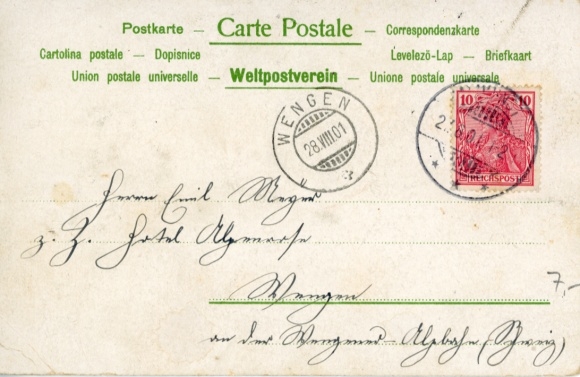 Postkarte — Carte Postale — Correspondenzkarte
Cartolina postale — Dopisnice Levelező-Lap — Briefkaart
Union postale universelle — Weltpostverein — Unione postale universale
WENGEN
28.VIII.01
10 10
REICHSPOST
Herrn Emil Meyer
z. Z. Hotel Alpenrose
Wengen
7,-
an der Wengern-Alpbahn (Schweiz)